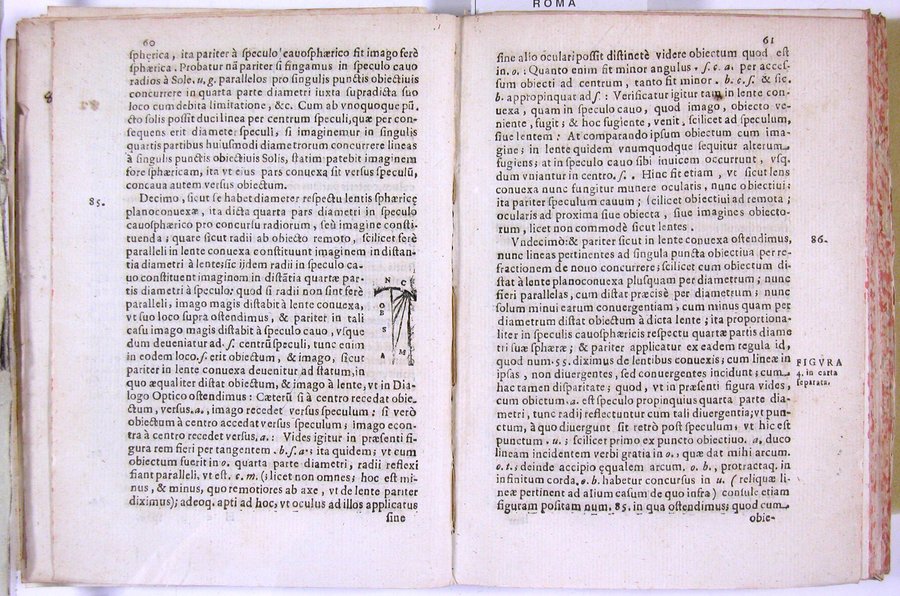 ROMA
60
sphęrica, ita pariter à speculo cauosphærico fit imago ferè
sphærica. Probatur nã pariter si fingamus in speculo cauo
radios à Sole. u. g. parallelos pro singulis punctis obiectiuis
concurrere in quarta parte diametri iuxta supradicta suo
loco cum debita limitatione, &c. Cum ab vnoquoque pũ-
cto solis possit duci linea per centrum speculi, quæ per con-
sequens erit diameter speculi, si imaginemur in singulis
quartis partibus huiusmodi diametrorum concurrere lineas
à singulis punctis obiectiuis Solis, statim patebit imaginem
fore sphæricam, ita vt eius pars conuexa sit versus speculũ,
concaua autem versus obiectum.
85.
Decimo, sicut se habet diameter respectu lentis sphæricę
planoconuexæ, ita dicta quarta pars diametri in speculo
cauosphærico pro concursu radiorum, seù imagine consti-
tuenda; quare sicut radij ab obiecto remoto, scilicet ferè
paralleli in lente conuexa constituunt imaginem in distan-
tia diametri à lente; sic ijdem radij in speculo ca-
uo constituent imaginem in distãtia quartæ par-
tis diametri à speculo: quod si radij non sint ferè
paralleli, imago magis distabit à lente conuexa,
vt suo loco supra ostendimus, & pariter in tali
casu imago magis distabit à speculo cauo, vsque
dum deueniatur ad. s. centrũ speculi, tunc enim
in eodem loco. s. erit obiectum, & imago, sicut
pariter in lente conuexa deuenitur ad statum, in
quo æqualiter distat obiectum, & imago à lente, vt in Dia-
logo Optico ostendimus: Cæterũ si à centro recedat obie-
ctum, versus. a., imago recedet versus speculum: si verò
obiectum à centro accedat versus speculum; imago econ-
tra à centro recedet versus. a.: Vides igitur in præsenti fi-
gura rem fieri per tangentem. b. s. a.; ita quidem; vt cum
obiectum fuerit in o. quarta parte diametri, radij reflexi
fiant paralleli, vt est. c. m. (; licet non omnes; hoc est mi-
nus, & minus, quo remotiores ab axe, vt de lente pariter
diximus); adeoq. apti ad hoc, vt oculus ad illos applicatus
sine
N C
O
B
S
A M
61
sine alio oculari possit distinctè videre obiectum quod est
in. o.: Quanto enim fit minor angulus. s. c. a. per acces-
sum obiecti ad centrum, tanto fit minor. b. c. s. & sic.
b. appropinquat ad s.: Verificatur igitur tam in lente con-
uexa, quam in speculo cauo, quod imago, obiecto ve-
niente, fugit; & hoc fugiente, venit, scilicet ad speculum,
siue lentem: At comparando ipsum obiectum cum ima-
gine; in lente quidem vnumquodque sequitur alterum
fugiens; at in speculo cauo sibi inuicem occurrunt, vsq.
dum vniantur in centro. s.. Hinc fit etiam, vt sicut lens
conuexa nunc fungitur munere ocularis, nunc obiectiui:
ita pariter speculum cauum; scilicet obiectiui ad remota;
ocularis ad proxima siue obiecta, siue imagines obiecto-
rum, licet non commodè sicut lentes.
86.
Vndecimò: & pariter sicut in lente conuexa ostendimus,
nunc lineas pertinentes ad singula puncta obiectiua per re-
fractionem de nouo concurrere; scilicet cum obiectum di-
stat à lente planoconuexa plusquam per diametrum; nunc
fieri parallelas, cum distat præcisè per diametrum; nunc
solum minui earum conuergentiam, cum minus quam per
diametrum distat obiectum à dicta lente; ita proportiona-
liter in speculis cauosphæricis respectu quartæ partis diame
tri suæ sphæræ; & pariter applicatur ex eadem regula id,
quod num. 55. diximus de lentibus conuexis; cum lineæ in
ipsas, non diuergentes, sed conuergentes incidunt; cum
hac tamen disparitate; quod, vt in præsenti figura vides,
cum obiectum. a. est speculo propinquius quarta parte dia-
metri, tunc radij reflectuntur cum tali diuergentia; vt pun-
ctum, à quo diuergunt sit retrò post speculum; vt hic est
punctum. u.; scilicet primo ex puncto obiectiuo. a. duco
lineam incidentem verbi gratia in o., quæ dat mihi arcum.
o. t.; deinde accipio ęqualem arcum. o. b., protractaq. in
infinitum corda. o. b. habetur concursus in u. (reliquæ li-
neæ pertinent ad alium casum de quo infra) consule etiam
figuram positam num. 85. in qua ostendimus; quod cum
obie-
FIGVRA
4. in carta
separata.